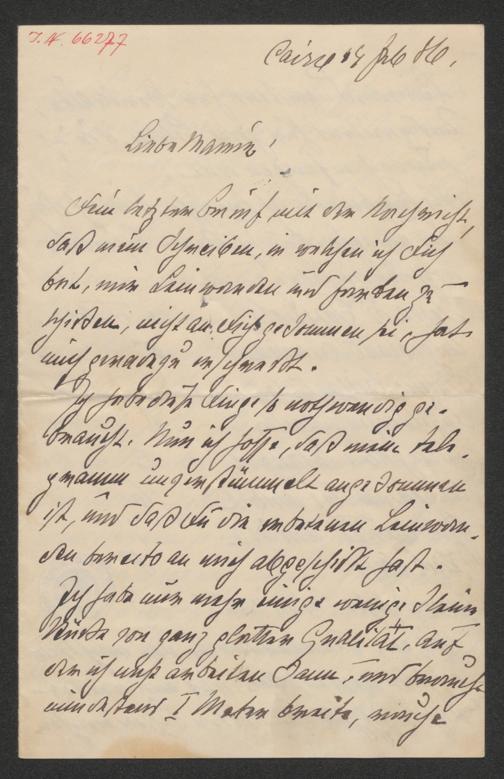 I.N. 66277
Cairo 14 Feb 86.
Liebe Mamú!
Dein letzter Brief mit der Nachricht,
daß mein Schreiben, in welchen ich Dich
bat, mir Leinwanden und Farben zu
schicken, nicht an Dich gekommen sei, hat
mich geradezu erschreckt.
Ich habe diese Dinge so nothwendig ge-
braucht. Nun ich hoffe, daß mein Tele-
gramm unverstümmelt angekommen
ist, und daß Du die erbetenen Leinwan-
den bereits an mich abgeschickt hast.
Ich habe nur mehr einige wenige kleine
Stücke von ganz glatter Qualität, auf
der ich nicht arbeiten kann, und brauche
mindestens 1 Meter breite, rauhe